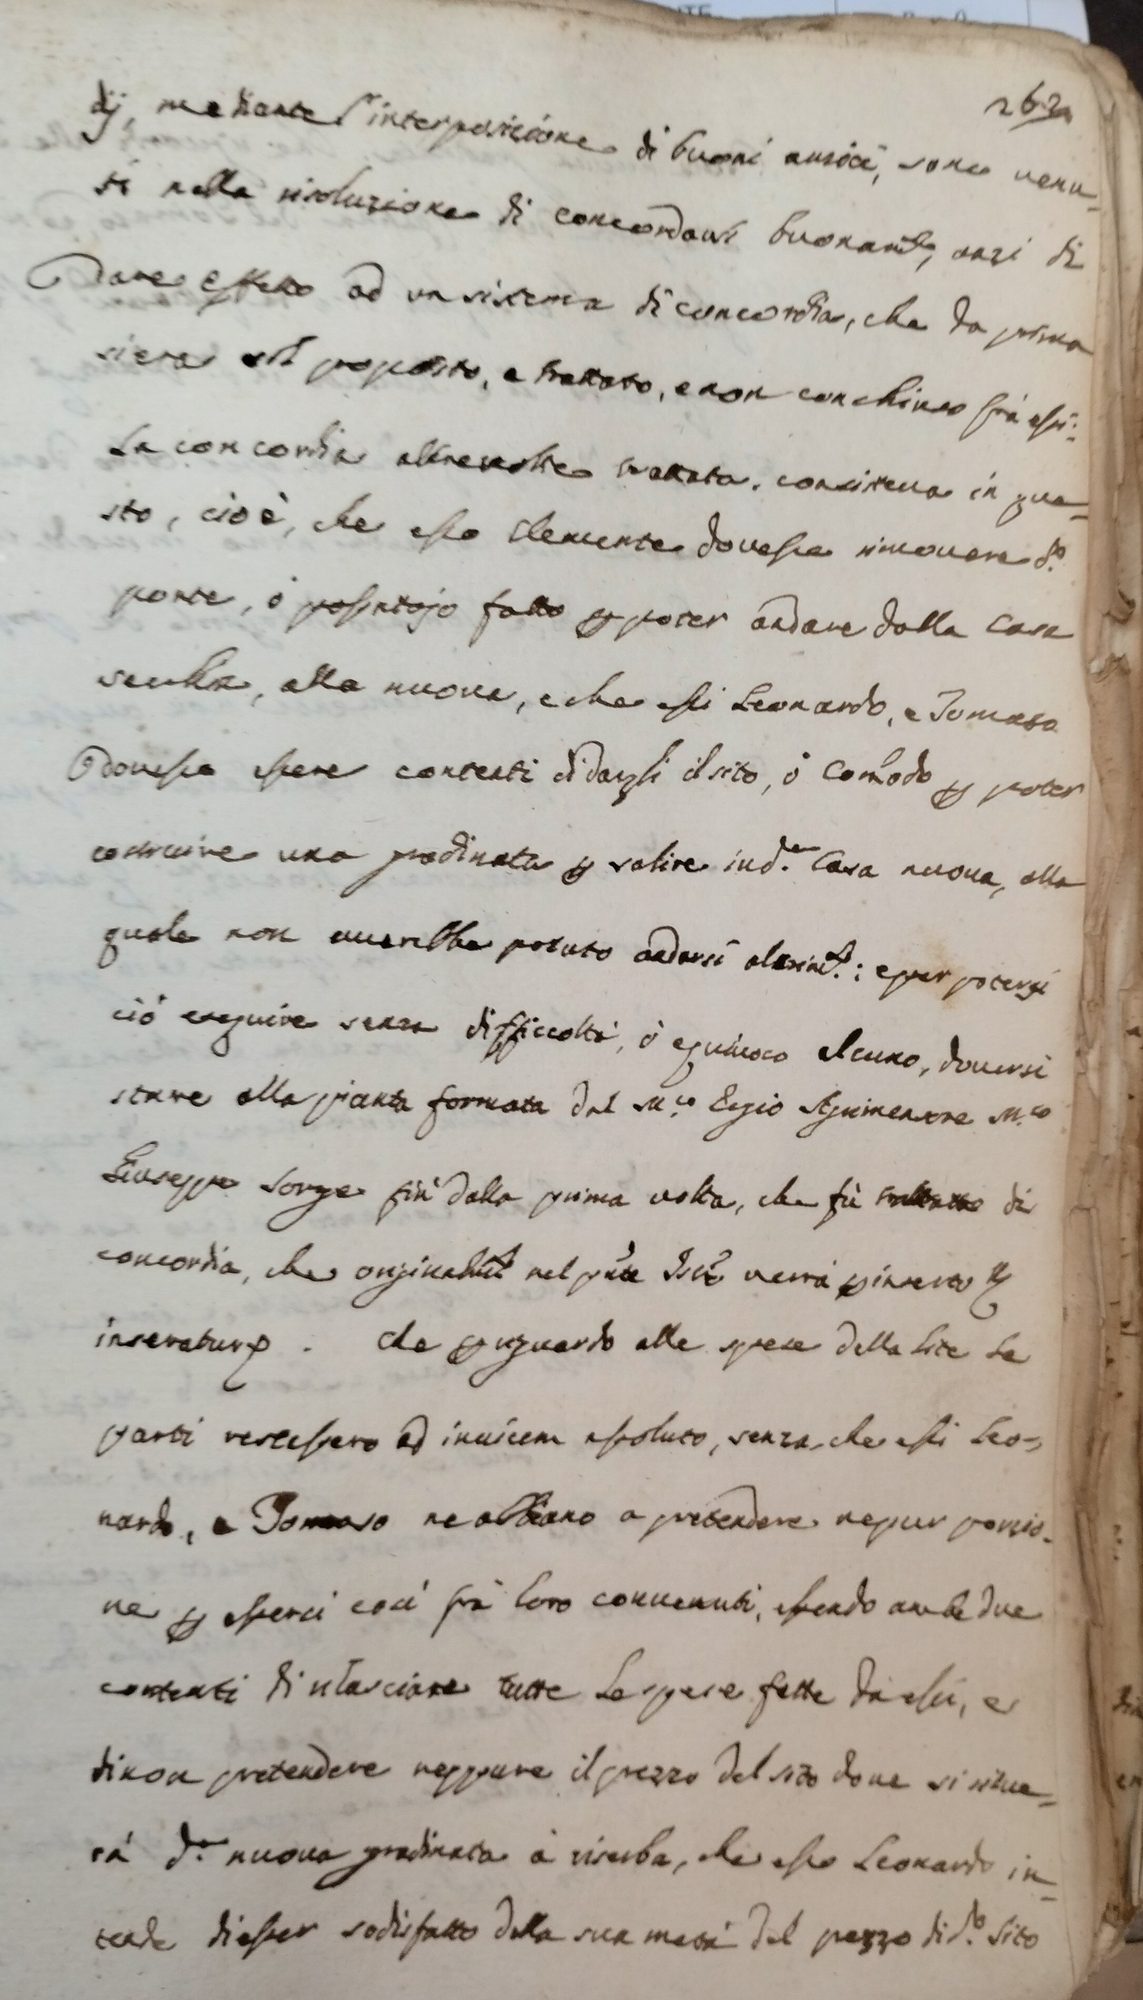 263
dij, mediante l'interposizione di buoni amici, sono venu-
ti nella risoluzione di concordarsi buonam.te, anzi di
dare effetto ad un sistema di concordia, che da prima
si era proposto, e trattato, e non conchiuso frà essi:
La concordia altrevolte trattata, consisteva in que-
sto, cioè, che esso Clemente dovesse rimovere d.o
ponte, ò passatojo fatto per poter andare dalla Casa
vecchia, alla nuova, e che essi Leonardo, e Tomaso
dovessero essere contenti di dargli il sito, ò Comodo per poter
costruire una gradinata per salire in d.a Casa nuova, alla
quale non averebbe potuto andarsi altrim.te: e per potersi
ciò eseguire senza difficoltà, ò equivoco alcuno, doversi
stare alla pianta formata dal M.co Regio Agrimensore M.co
Giuseppe Sorge fin dalla prima volta, che fù trattato di
concordia, che originalm.te nel pn̄te verrà per inserto
inseratur. Che per riguardo alle spese della Lite Le
parti restassero ad invicem assoluto, senza che essi Leo-
nardo, e Tomaso ne abbiano a pretendere nepur porzio-
ne per essersi così frà loro convenuti, essendo ambedue
contenti di rilasciare tutte Le spese fatte da essi, e
di non pretendere neppure il prezzo del sito dove si situe-
rà d.a nuova gradinata à riserba, che esso Leonardo in-
tende di esser sodisfatto della sua metà del prezzo di d.o Sito